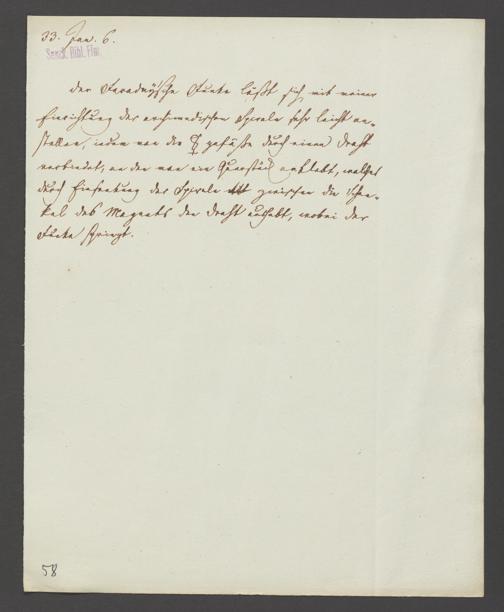 33. Jan. 6.
Senck. Bibl. Ffm.
Der Faradaysche Funke läßt sich mit meiner
Einrichtung der archimedischen Spirale sehr leicht an-
stellen, indem man die ☿ gefäße durch einen Draht
verbindet, an den man ein anklebt, welches
durch Einsenkung der Spirale zwischen die Schen-
kel des Magnets den Draht aufhebt, wobei der
Funke springt.
58